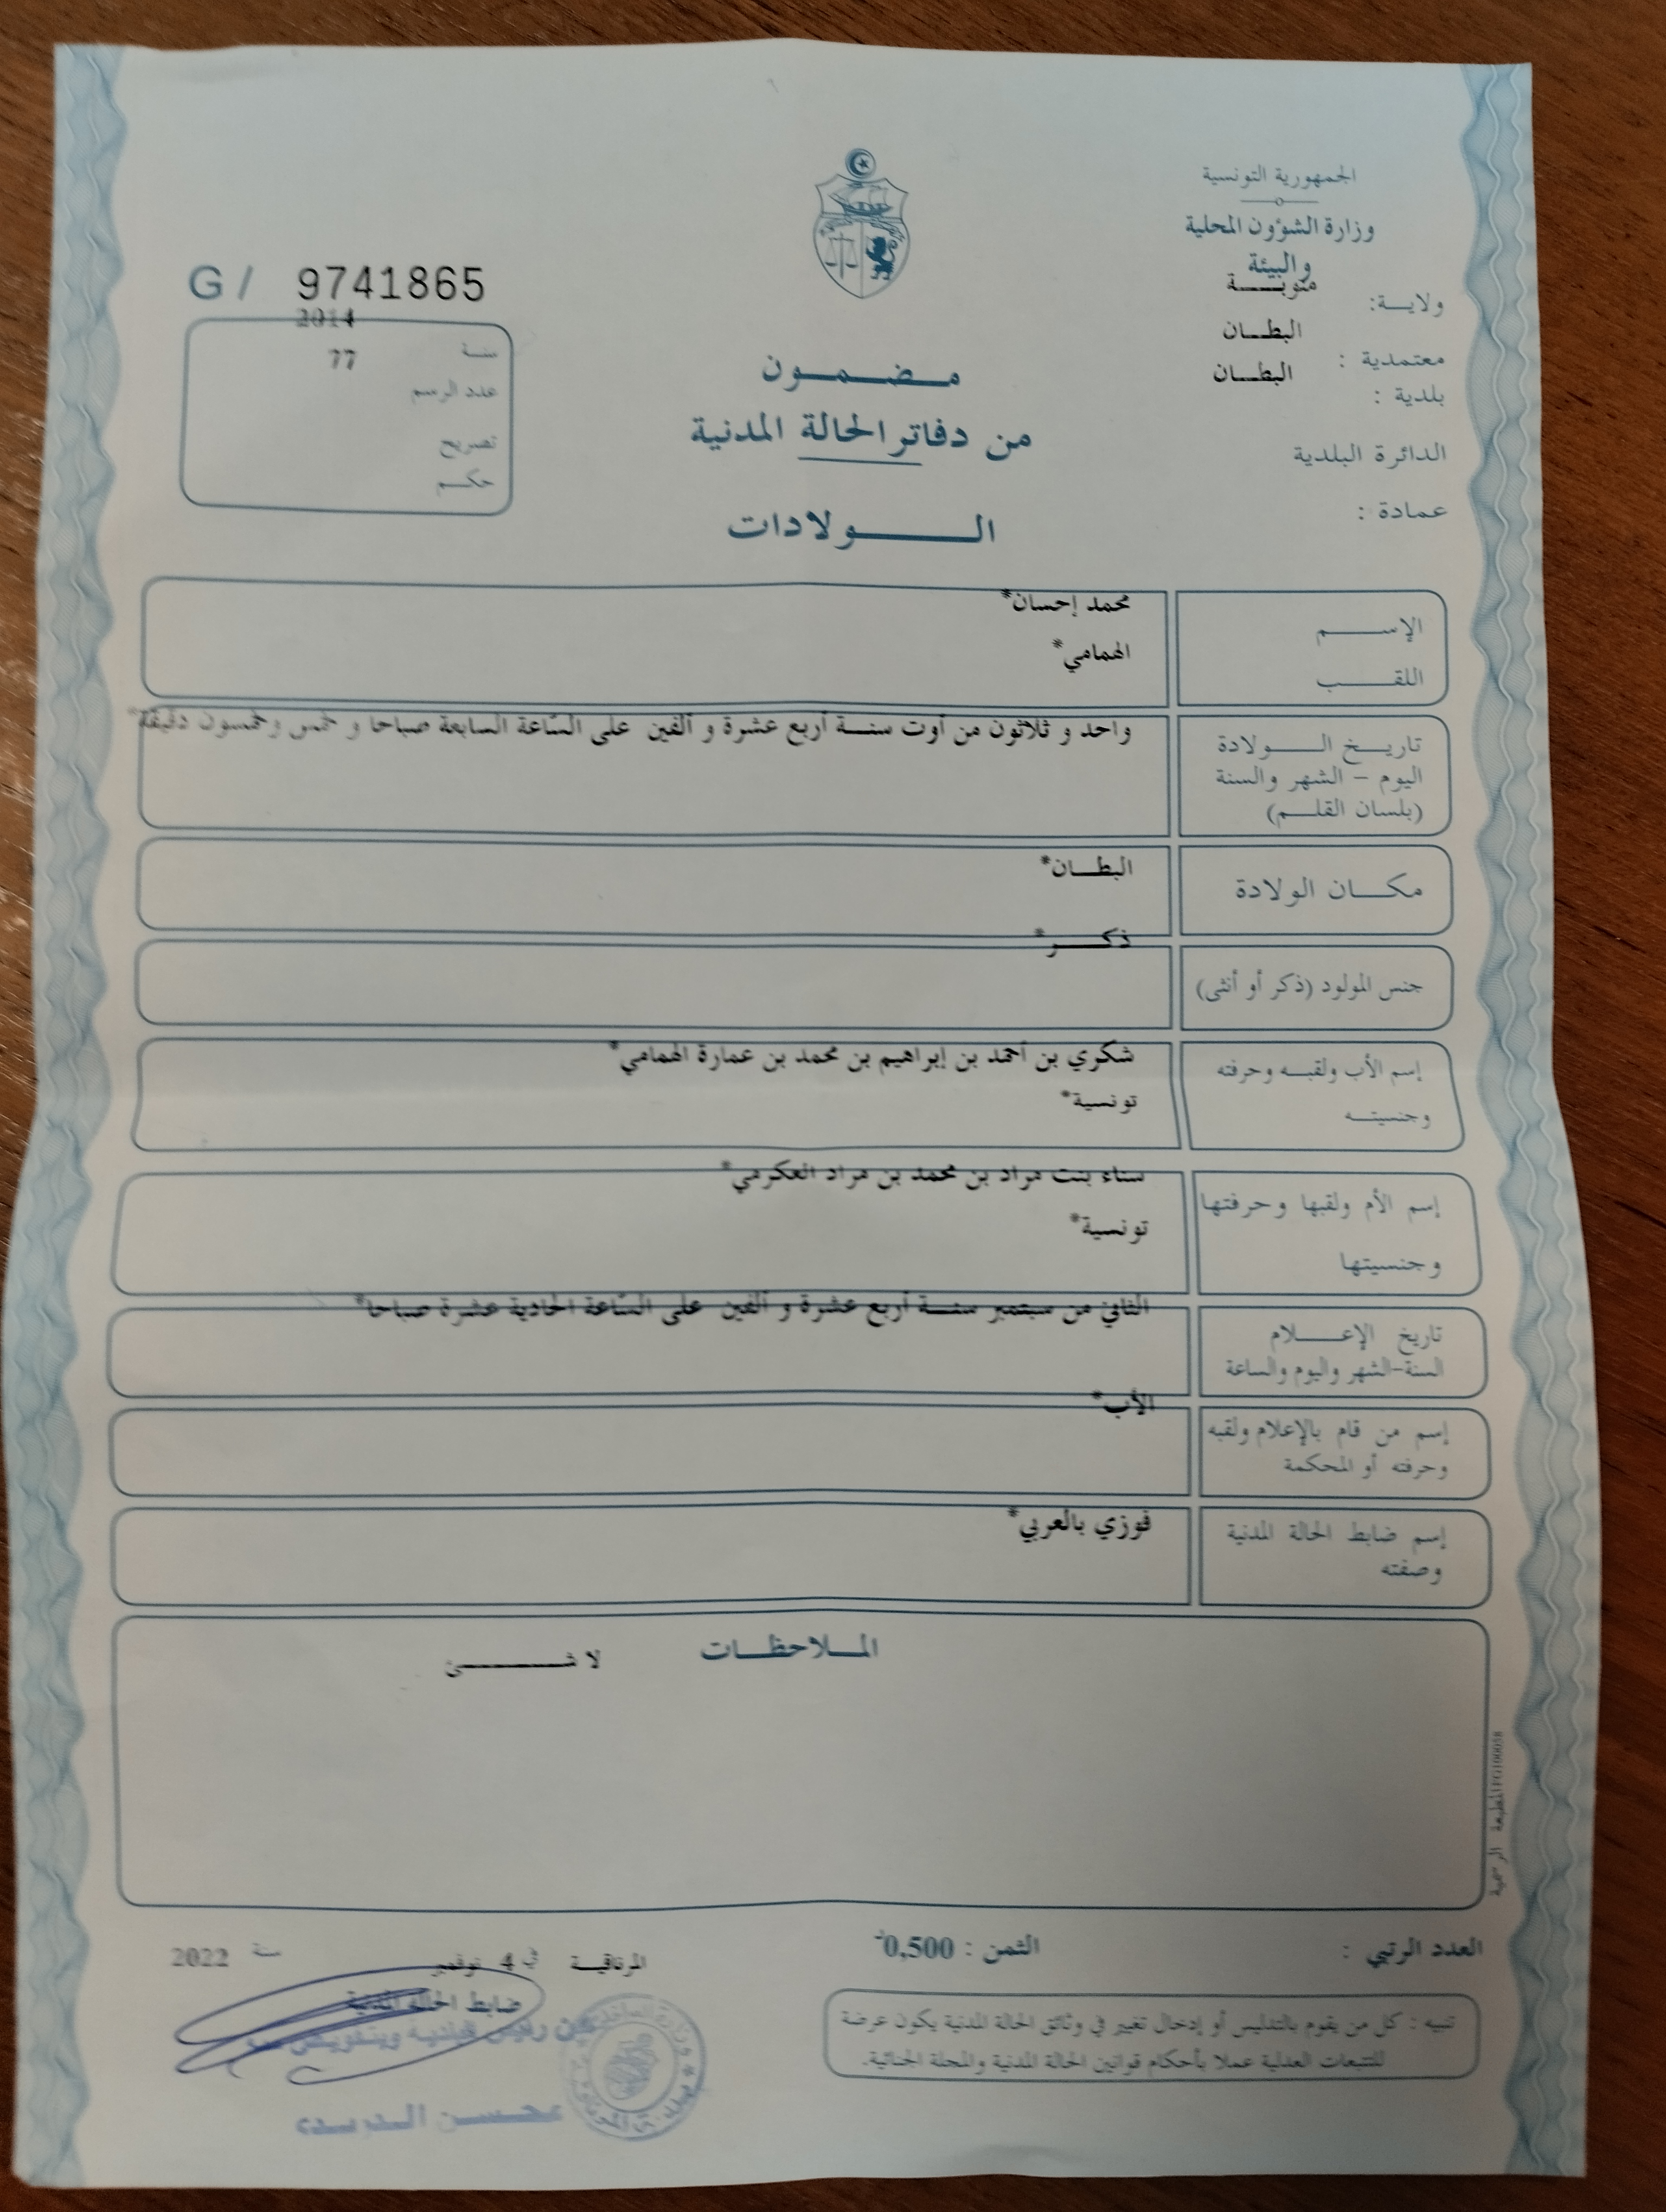 الجمهورية التونسية
وزارة الشؤون المحلية
والبيئة
ولاية: منوبة
معتمدية : البطان
بلدية : البطان
الدائرة البلدية
عمادة :
G / 9741865
سنة 2014
عدد الرسم 77
تصريح
حكم
مضمون
من دفاتر الحالة المدنية
الولادات
الإسم محمد إحسان*
اللقب الهمامي*
تاريخ الولادة واحد و ثلاثون من أوت سنة أربع عشرة و ألفين على السّاعة السابعة صباحا و خمس وخمسون دقيقة*
اليوم - الشهر والسنة
(بلسان القلم)
مكان الولادة البطان*
جنس المولود (ذكر أو أنثى) ذكر*
إسم الأب ولقبه وحرفته شكري بن أحمد بن إبراهيم بن محمد بن عمارة الهمامي*
وجنسيته تونسية*
إسم الأم ولقبها وحرفتها سناء بنت مراد بن محمد بن مراد العكرمي*
وجنسيتها تونسية*
تاريخ الإعلام الثاني من سبتمبر سنة أربع عشرة و ألفين على السّاعة الحادية عشرة صباحا*
السنة-الشهر واليوم والساعة
إسم من قام بالإعلام ولقبه الأب*
وحرفته أو المحكمة
إسم ضابط الحالة المدنية فوزي بالعربي*
وصفته
الملاحظات
لا شئ
المطبعة الرسمية
العدد الرتبي :
الثمن : 0,500د
المرناقية في 4 نوفمبر سنة 2022
ضابط الحالة المدنية
عن رئيس البلدية وبتفويض منه
تنبيه : كل من يقوم بالتدليس أو إدخال تغيير في وثائق الحالة المدنية يكون عرضة
للتتبعات العدلية عملا بأحكام قوانين الحالة المدنية والمجلة الجنائية.